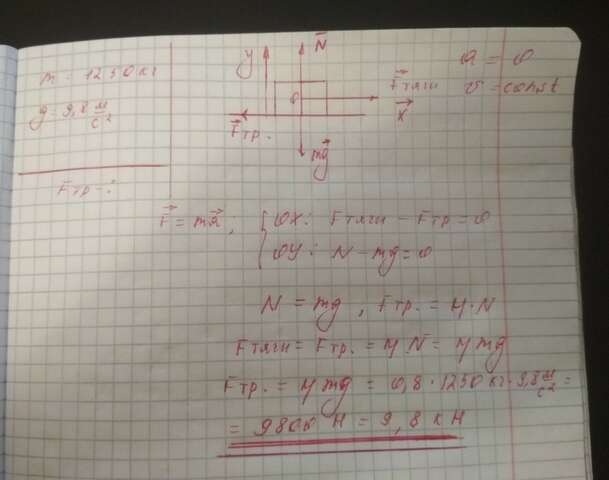 m = 1250 кг
g = 9,8 м/с²
Fтр - ?
y
N⃗
0
F⃗тяги
x⃗
F⃗тр.
mg⃗
a = 0
v = const
F⃗ = ma⃗ ; { OX: Fтяги - Fтр = 0
OY: N - mg = 0
N = mg , Fтр. = μ·N
Fтяги = Fтр. = μ·N = μmg
Fтр. = μmg = 0,8 · 1250 кг · 9,8 м/с² =
= 9800 Н = 9,8 кН